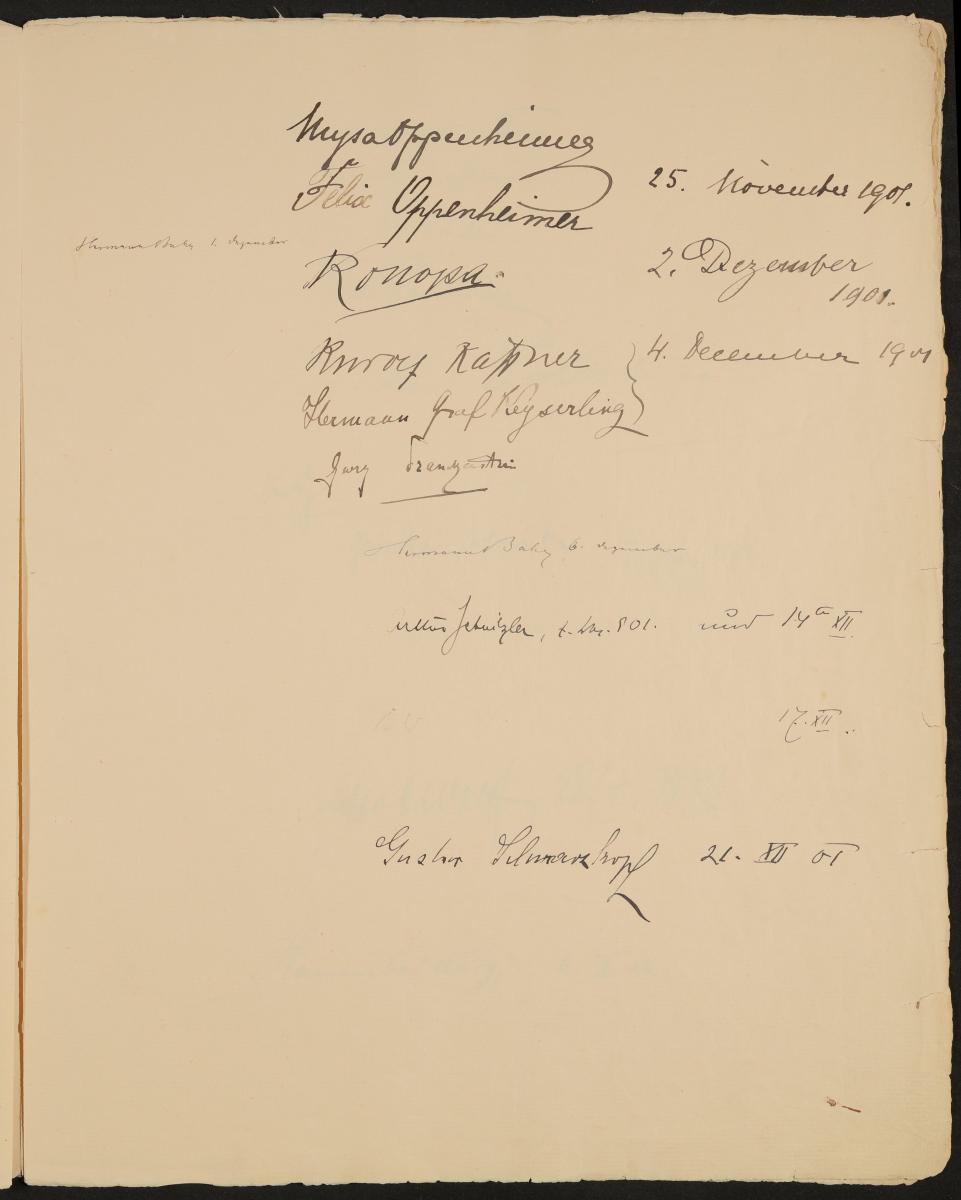 Mysa Oppenheimer
Felix Oppenheimer 25. November 1901.
Hermann Bahr 1. Dezember
Konopa. 2. Dezember
1901.
Rudolf Kassner 4. December 1901
Hermann Graf Keyserling
Georg Franckenstein
Hermann Bahr 6. Dezember
Arthur Schnitzler, 901. und 14 XII
17. XII.
Gustav Schwarzkopf 21. XII 01